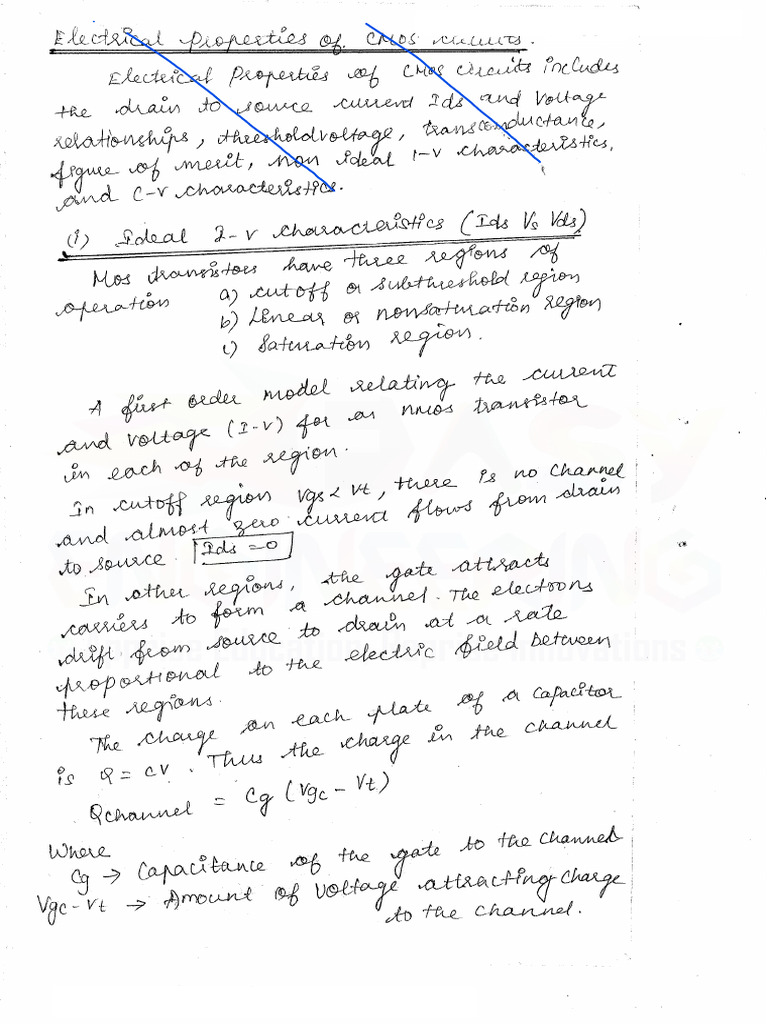 Electrical Properties of CMOS circuits.
Electrical Properties of CMOS circuits includes
the drain to source current Ids and Voltage
relationships, threshold voltage, transconductance,
figure of merit, non ideal I-V characteristics,
and C-V characteristics.
(i) Ideal I-V characteristics (Ids Vs Vds)
Mos transistors have three regions of
operation a) cutoff or subthreshold region
b) Linear or nonsaturation region
c) Saturation region.
A first order model relating the current
and voltage (I-V) for an nmos transistor
in each of the region.
In cutoff region Vgs < Vt, there is no Channel
and almost zero current flows from drain
to source. Ids = 0
In other regions, the gate attracts
carriers to form a channel. The electrons
drift from source to drain at a rate
proportional to the electric field between
these regions.
The charge on each plate of a capacitor
is Q = CV. Thus the charge in the channel
Qchannel = Cg (Vgc - Vt)
Where
Cg → Capacitance of the gate to the channel
Vgc - Vt → Amount of Voltage attracting charge
to the channel.